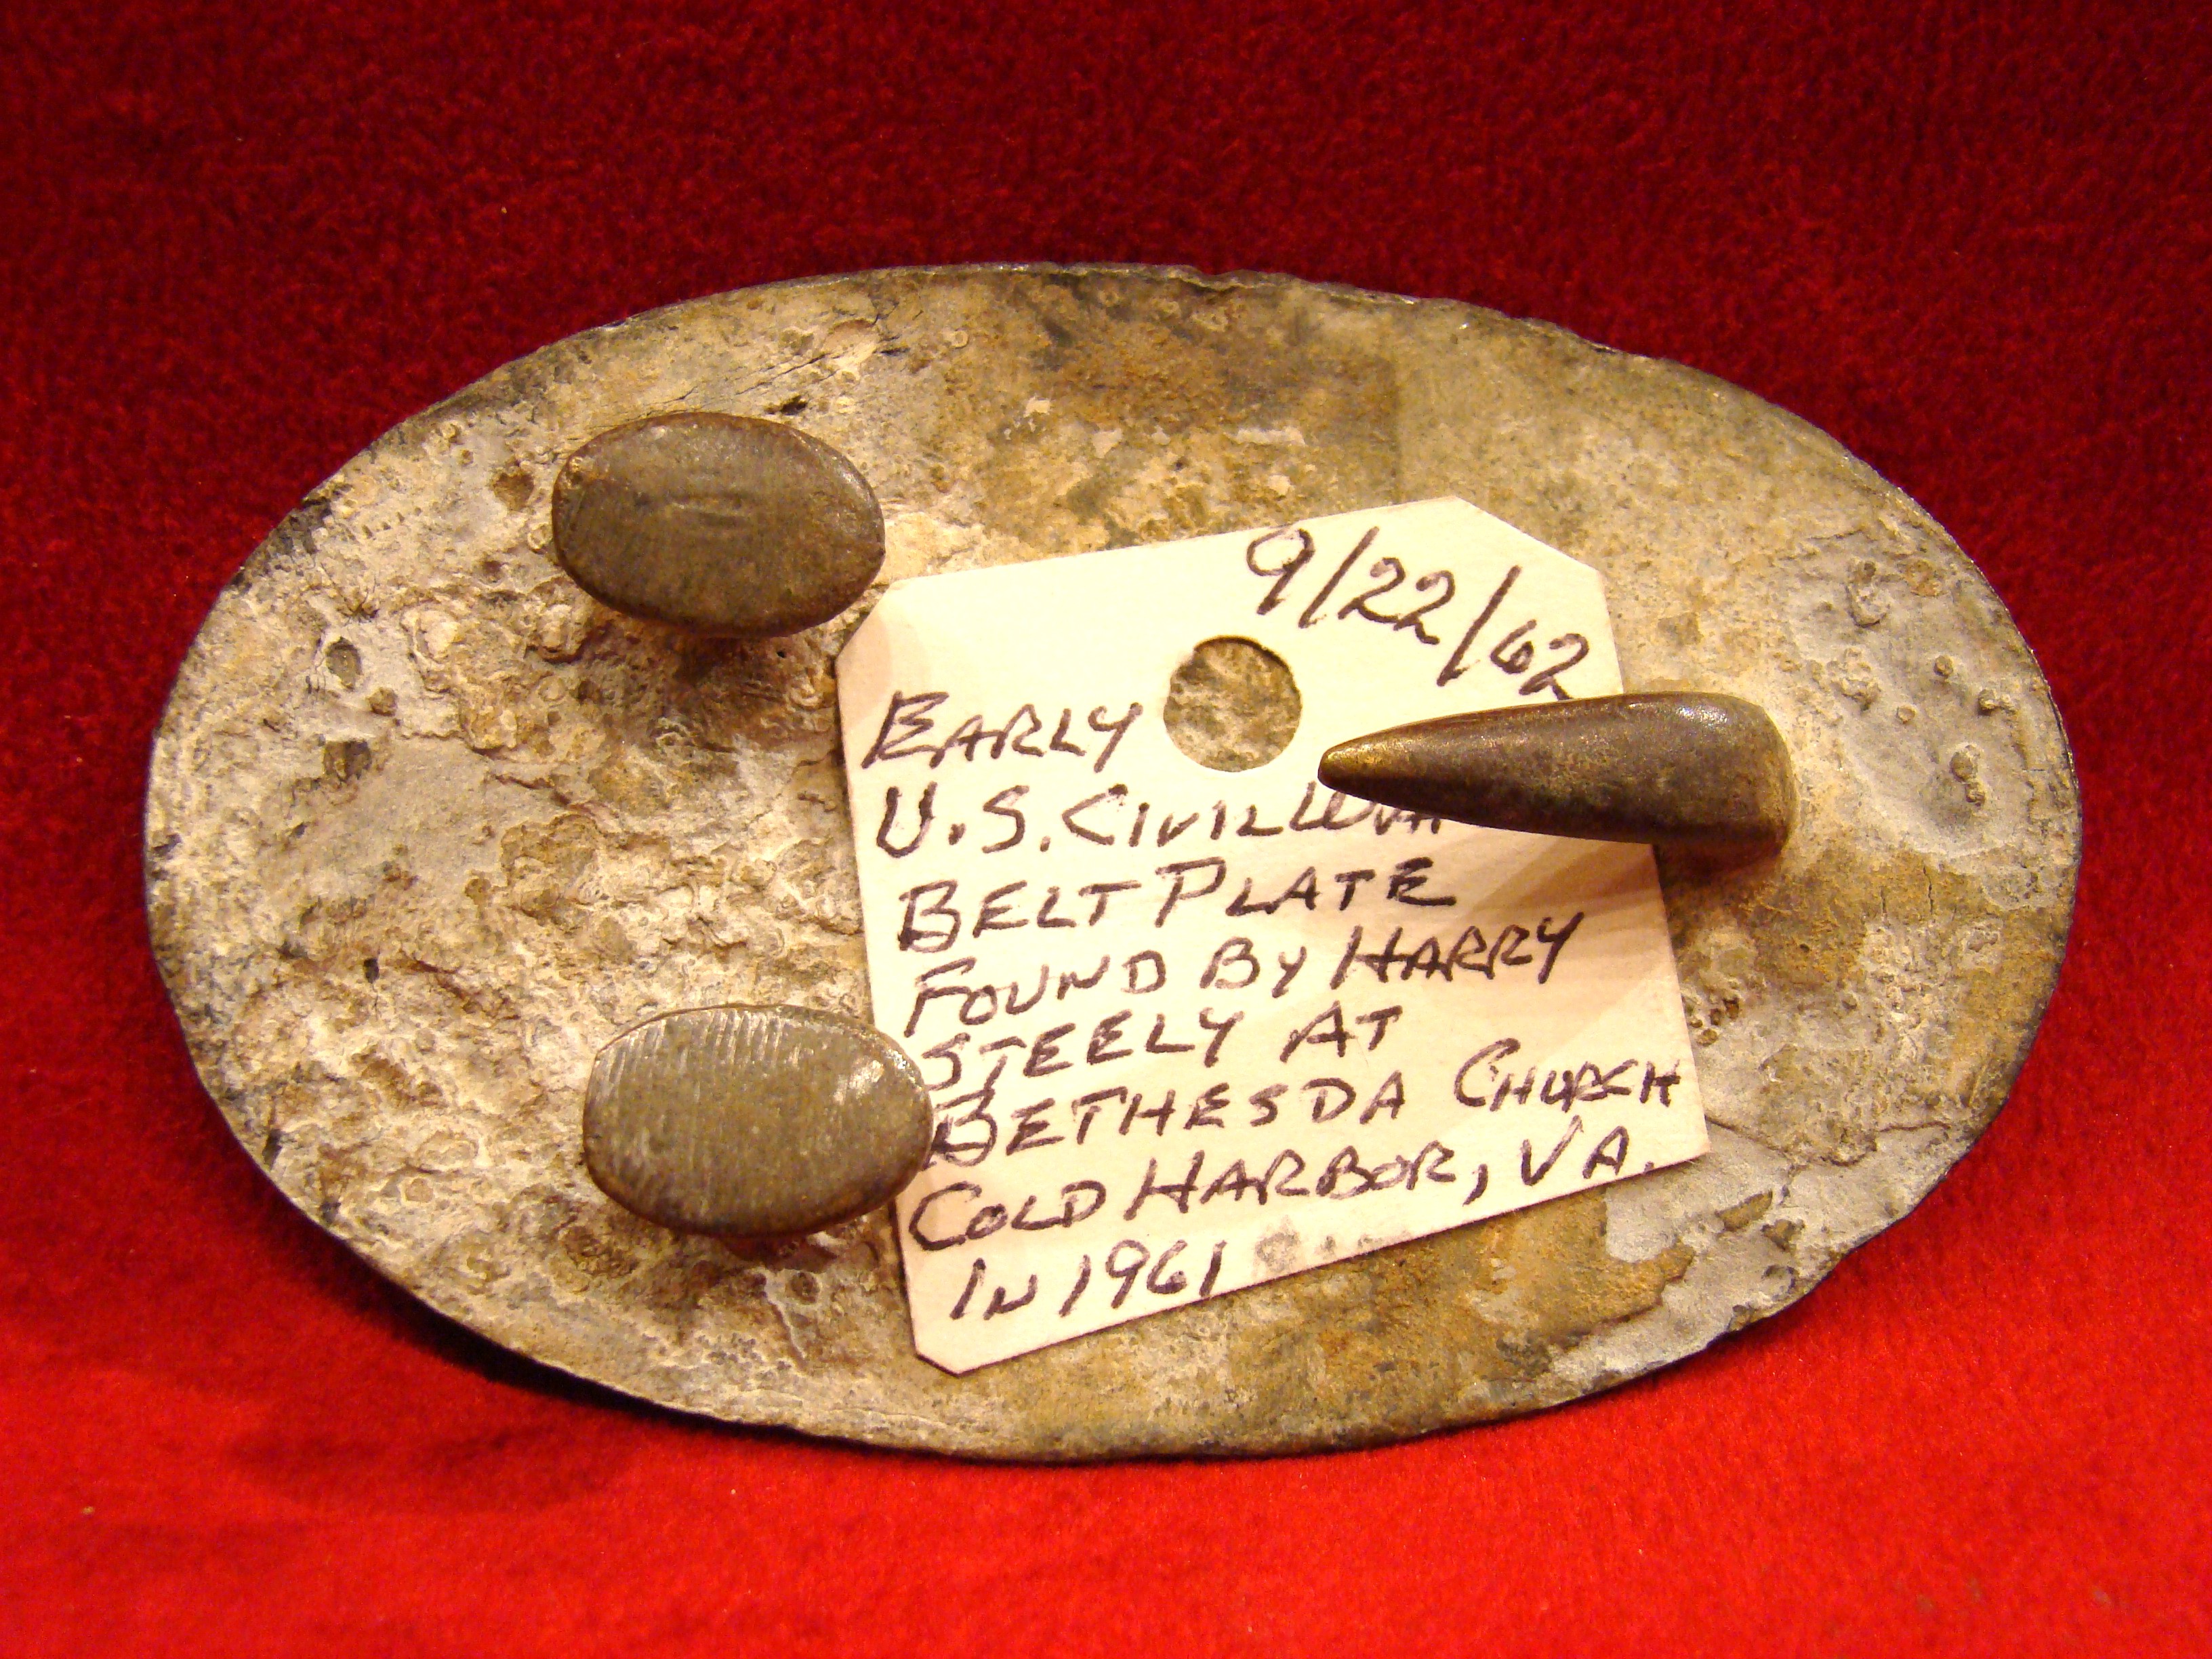 9/22/62
EARLY
U.S. CIVIL WAR
BELT PLATE
FOUND BY HARRY
STEELY AT
BETHESDA CHURCH
COLD HARBOR, VA.
IN 1961